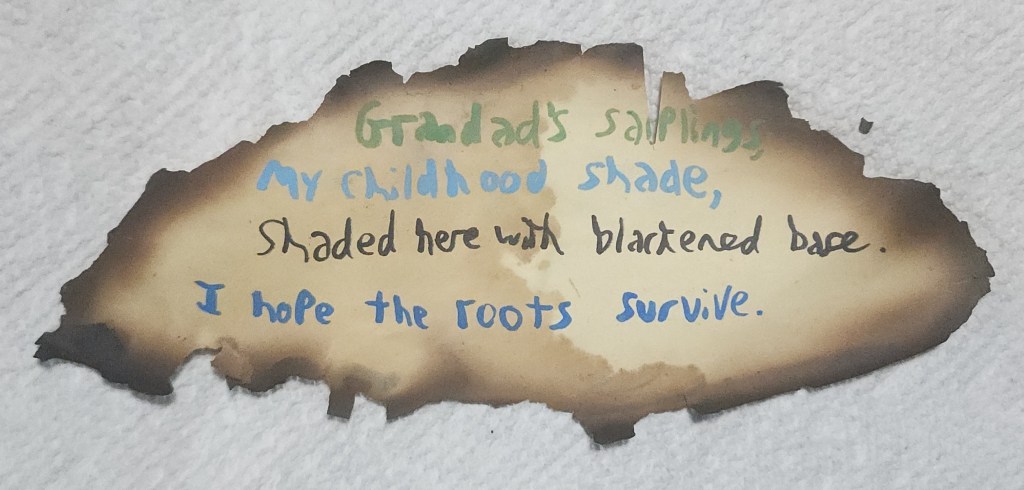 Grandad's saplings,
My childhood shade,
Shaded here with blackened base.
I hope the roots survive.